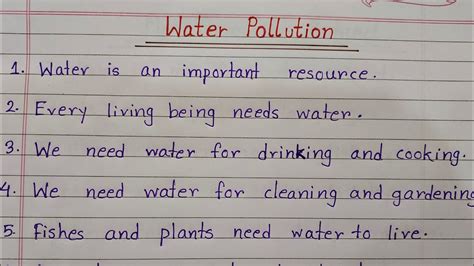 Water Pollution
1. Water is an important resource.
2. Every living being needs water.
3. We need water for drinking and cooking.
4. We need water for cleaning and gardening
5. Fishes and plants need water to live.